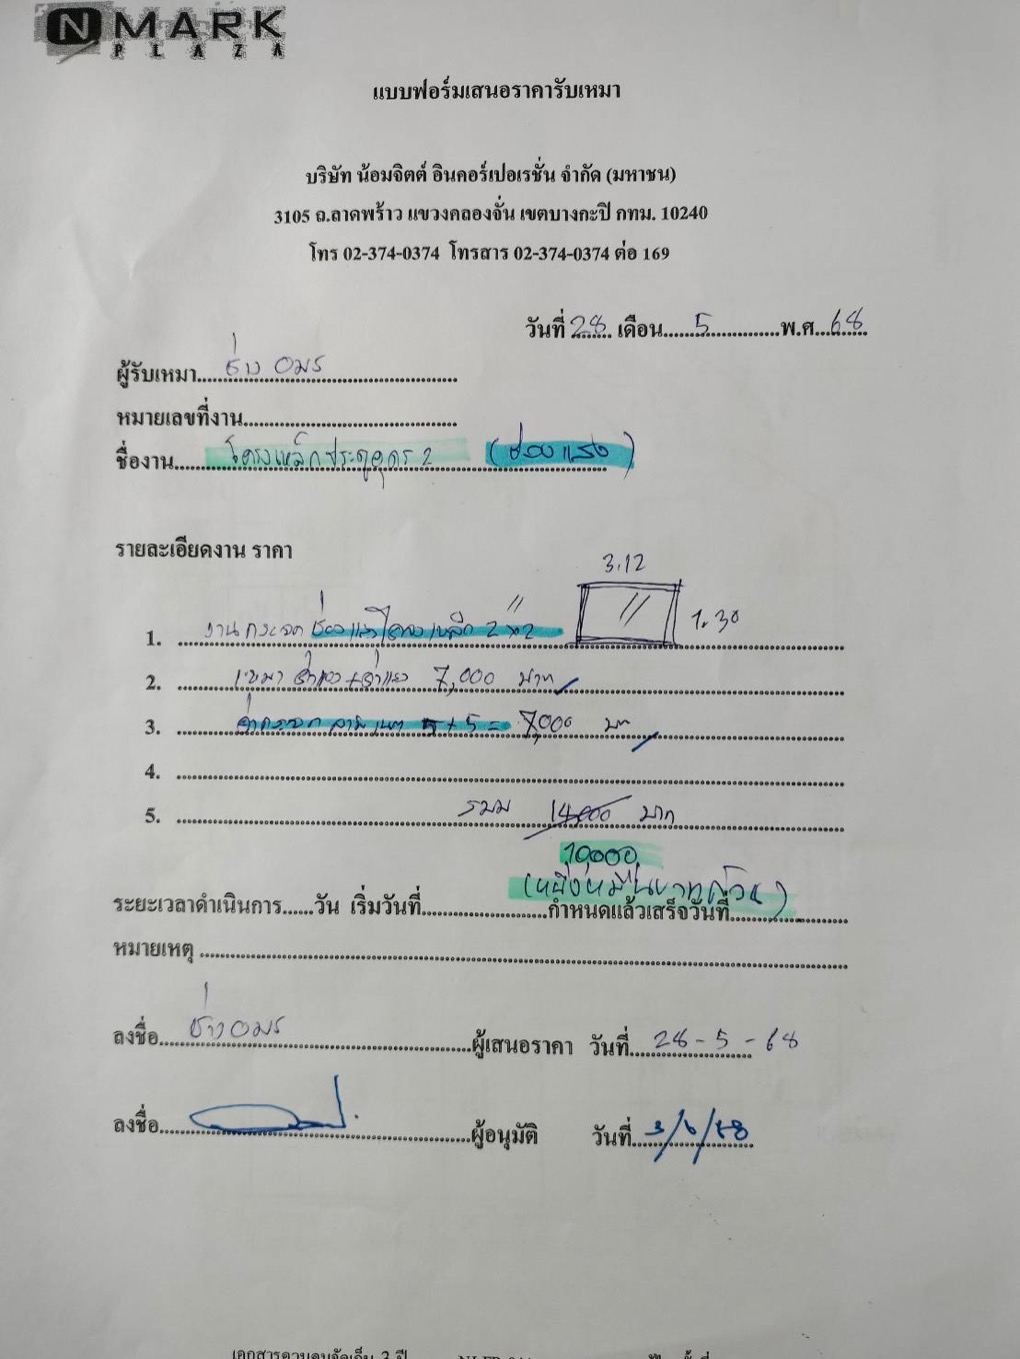 N MARK
PLAZA
แบบฟอร์มเสนอราคารับเหมา
บริษัท น้อมจิตต์ อินคอร์เปอเรชั่น จำกัด (มหาชน)
3105 ถ.ลาดพร้าว แขวงคลองจั่น เขตบางกะปิ กทม. 10240
โทร 02-374-0374 โทรสาร 02-374-0374 ต่อ 169
วันที่ 28 เดือน 5 พ.ศ. 68
ผู้รับเหมา ช่าง อมร
หมายเลขที่งาน
ชื่องาน โครงเหล็กประตูอุดร 2 (ช่องแสง)
รายละเอียดงาน ราคา
3.12
1.30
1. งานกระจก ช่องแสงโครงเหล็ก 2"x2
2. เหมา ค่าของ+ค่าแรง 7,000 บาท
3. ค่ากระจก ลามิเนต 5+5 = 7,000 บาท
4.
5. รวม 14,000 บาท
10,000
(หนึ่งหมื่นบาทถ้วน)
ระยะเวลาดำเนินการ......วัน เริ่มวันที่ กำหนดแล้วเสร็จวันที่
หมายเหตุ
ลงชื่อ ช่างอมร ผู้เสนอราคา วันที่ 28-5-68
ลงชื่อ ผู้อนุมัติ วันที่ 3/6/68
เอกสารควบคุมจัดเก็บ 3 ปี